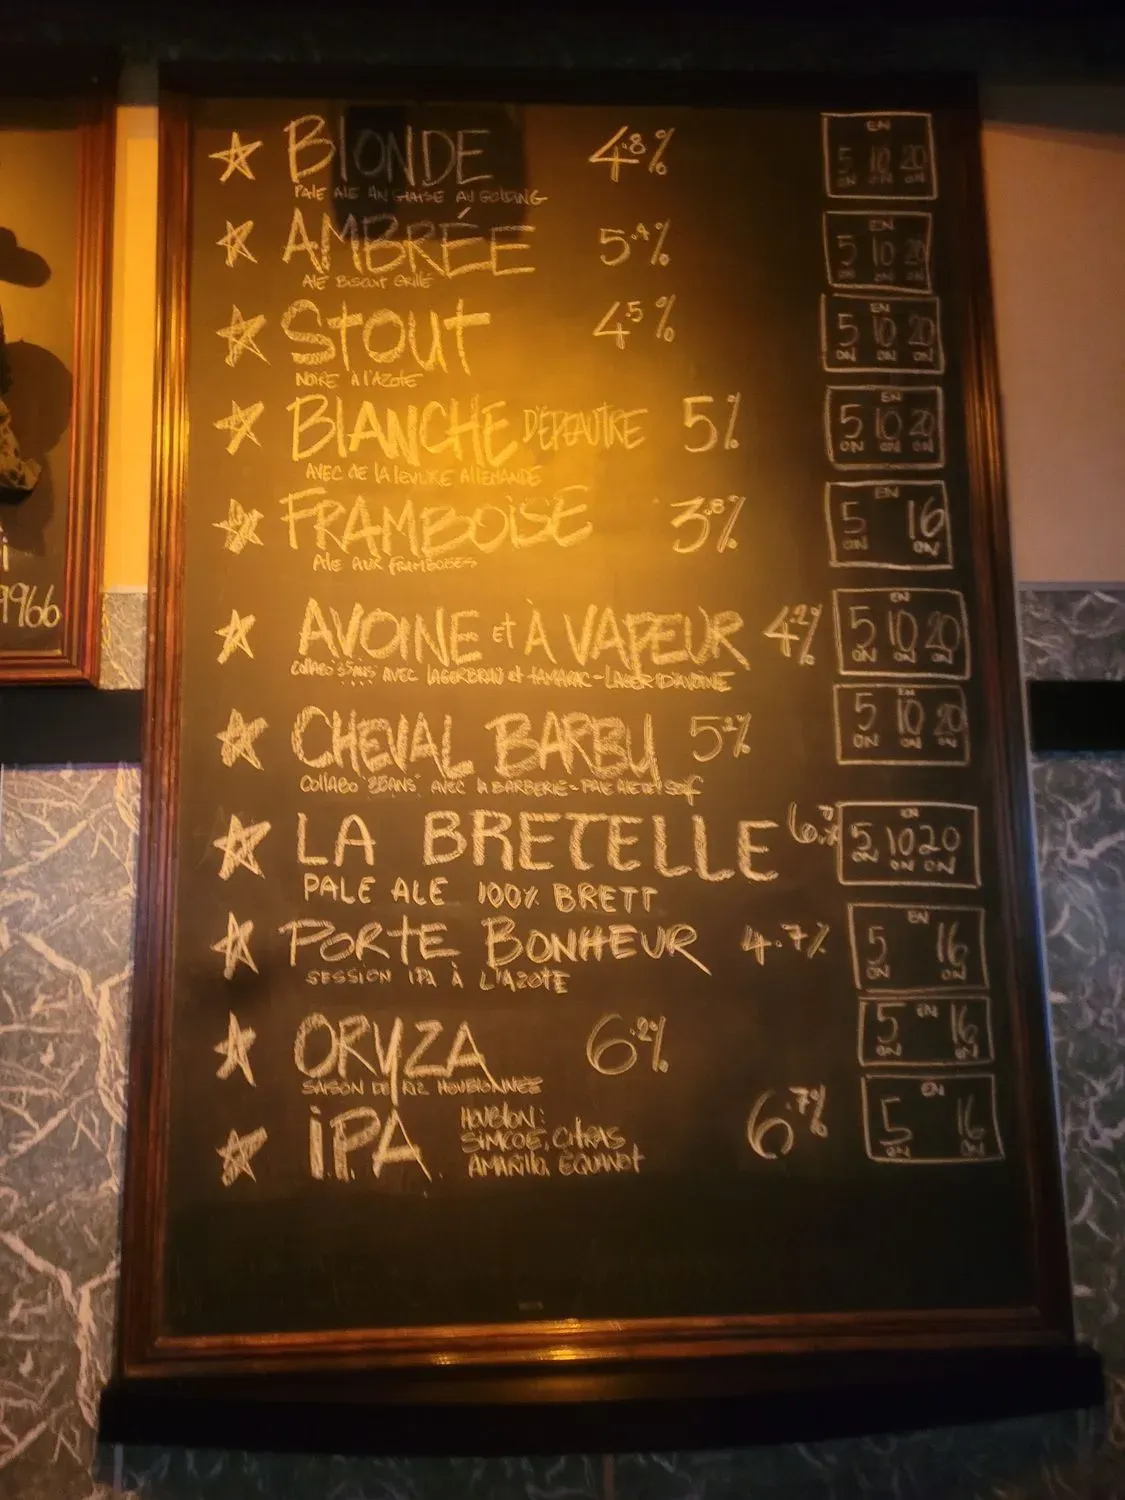 BLONDE 4.8%
PALE ALE ANGLAISE AU GOLDING
EN
5 10 20
ON ON ON
AMBRÉE 5.4%
ALE BISCUIT GRILLÉ
EN
5 10 20
ON ON ON
STOUT 4.5%
NOIRE À L'AZOTE
EN
5 10 20
ON ON ON
BLANCHE D'ÉPEAUTRE 5%
AVEC DE LA LEVURE ALLEMANDE
EN
5 10 20
ON ON ON
FRAMBOISE 3.8%
ALE AUX FRAMBOISES
EN
5 16
ON ON
AVOINE ET À VAPEUR 4.2%
COLLABO AVEC LAGERBRAU et TAMARAC - LAGER D'AVOINE
EN
5 10 20
ON ON ON
CHEVAL BARBU 5.2%
COLLABO AVEC LA BARBERIE - PALE ALE DE SOIF
EN
5 10 20
ON ON ON
LA BRETELLE
PALE ALE 100% BRETT
EN
5 10 20
ON ON ON
PORTE BONHEUR 4.7%
SESSION IPA À L'AZOTE
EN
5 16
ON ON
ORYZA 6.2%
SAISON DE RIZ HOUBLONNÉE
EN
5 16
ON ON
I.P.A. HOUBLON: 6.7%
SIMCOE, CITRAS,
AMARILLO, EQUINOT
EN
5 16
ON ON
i
9966